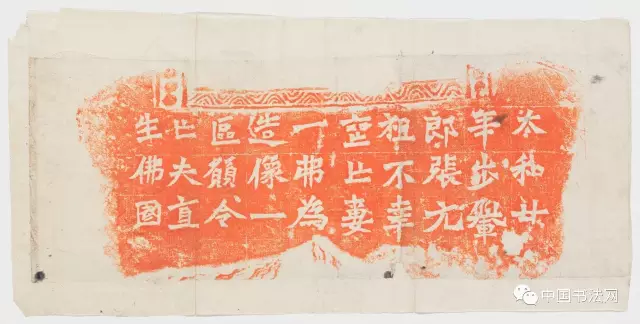 太和廿
年步轝
郎張元
祖不幸
喪亡妻
一弗為
造像一
區願令
亡夫直
生佛國
中国书法网